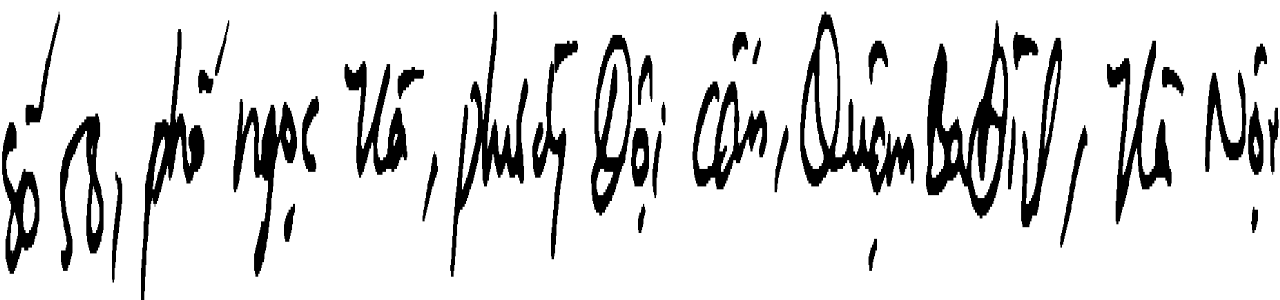 Số 58, phố Ngọc Hà, phường Đội Cấn, Quận Ba Đình, Hà Nội